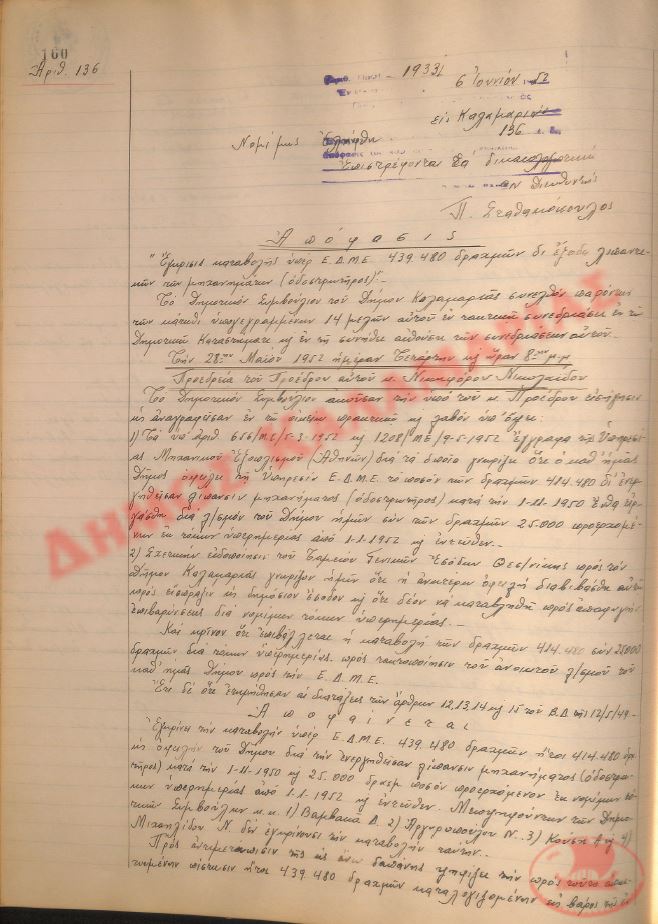 160
Ἀριθ. 136
19331
6 Ἰουνίου 52
εἰς Καλαμαριὰν
136
Νομίμως
Ἐπιστρέφονται τὰ δικαιολογητικά
Ὁ Διευθυντὴς
Π. Σταθακόπουλος
Ἀπόφασις
"Ἔγκρισις καταβολῆς ὑπὲρ Ε.Δ.Μ.Ε. 439.480 δραχμῶν δι' ἔξοδα λιπαντι-
κῶν τῶν μηχανημάτων (ὁδοστρωτῆρος)".-
Τὸ Δημοτικὸν Συμβούλιον τοῦ Δήμου Καλαμαριᾶς συνελθὸν παρόντων
τῶν κάτωθι ὑπογεγραμμένων 14 μελῶν αὐτοῦ ἐν τακτικῇ συνεδριάσει ἐν τῷ
Δημοτικῷ Καταστήματι κ ἐν τῇ συνήθει αἰθούσῃ τῶν συνεδριάσεων αὐτοῦ.-
Τὴν 28ην Μαΐου 1952 ἡμέραν Τετάρτην κ ὥραν 8ην μ.μ.
Προεδρείᾳ τοῦ Προέδρου αὐτοῦ κ. Νικηφόρου Νικολαΐδου
Τὸ Δημοτικὸν Συμβούλιον ἀκοῦσαν τὴν ὑπὸ τοῦ κ. Προέδρου εἰσήγησιν
ὡς ἀναγράφεται ἐν τῷ οἰκείῳ πρακτικῷ κ λαβὸν ὑπ' ὄψει:
1) Τὰ ὑπ' ἀριθ. 656/ΜΕ/5-3-1952 κ 1208/ΜΕ/9-5-1952 ἔγγραφα τῆς Ὑπηρεσί-
ας Μηχανικοῦ Ἐξοπλισμοῦ (Ἀθηνῶν) διὰ τὰ ὁποῖα γνωρίζει ὅτι ὁ καθ' ἡμᾶς
Δῆμος ὀφείλει τῇ Ὑπηρεσίᾳ Ε.Δ.Μ.Ε. τὸ ποσὸν τῶν δραχμῶν 414.480 δι' ἐνερ-
γηθεῖσαν λίπανσιν μηχανήματος (ὁδοστρωτῆρος) κατὰ τὴν 1-11-1950
διὰ λ/σμὸν τοῦ Δήμου ἡμῶν σὺν τῶν δραχμῶν 25.000 προερχομέ-
νων ἐκ τόκων ὑπερημερίας ἀπὸ 1-1-1952 κ ἐντεῦθεν.-
2) Σχετικὴν εἰδοποίησις τοῦ Ταμείου Γενικῶν Ἐσόδων Θεσ/νίκης πρὸς τὸν
Δῆμον Καλαμαριᾶς γνωρίζον ἡμῖν ὅτι ἡ ἀνωτέρω ὀφειλὴ διαβιβάσθη αὐτῷ
πρὸς εἴσπραξιν ὡς δημόσιον ἔσοδον κ ὅτι δέον νὰ καταβληθῇ πρὸς ἀποφυγὴν
ἐπιβαρύνσεως διὰ νομίμων τόκων ὑπερημερίας.-
Καὶ κρῖνον ὅτι ἐπιβάλλεται ἡ καταβολὴ τῶν δραχμῶν 414.480 σὺν 25000
δραχμῶν διὰ τόκων ὑπερημερίας πρὸς τακτοποίησιν τοῦ ἀνοικτοῦ λ/σμοῦ τοῦ
καθ' ἡμᾶς Δήμου πρὸς τὴν Ε.Δ.Μ.Ε.
Ἔτι δὲ ὅτι ἐτηρήθησαν αἱ διατάξεις τῶν ἄρθρων 12,13,14 κ 15 τοῦ Β.Δ. τῆς 12/5/49-
Ἀποφαίνεται
Ἐγκρίνει τὴν καταβολὴν ὑπὲρ Ε.Δ.Μ.Ε. 439.480 δραχμῶν ἤτοι 414.480 δρχ.
ὡς ὀφειλὴν τοῦ Δήμου διὰ τὴν ἐνεργηθεῖσαν λίπανσιν μηχανήματος (ὁδοστρω-
τῆρος) κατὰ τὴν 1-11-1950 κ 25.000 ποσὸν προερχόμενον ἐκ νομίμων τό-
κων ὑπερημερίας ἀπὸ 1-1-1952 κ ἐντεῦθεν. Μειοψηφούντων τῶν Δημο-
τικῶν Συμβούλων κ.κ. 1) Βαμβακᾶ Δ. 2) Ἀργυροπούλου Ν. 3) 4)
Μιχαηλίδου Ν. δὲν ἐγκρίνουσι τὴν καταβολὴν ταύτην.-
Πρὸς ἀντιμετώπισιν τῆς ὡς ἄνω δαπάνης ψηφίζει τὴν πρὸς τοῦτο
πίστωσιν ἤτοι 439.480 δραχμῶν καταλογιζομένην εἰς βάρος τῆς
ΔΗΜΟΣ ΚΑΛΑΜΑΡΙΑΣ